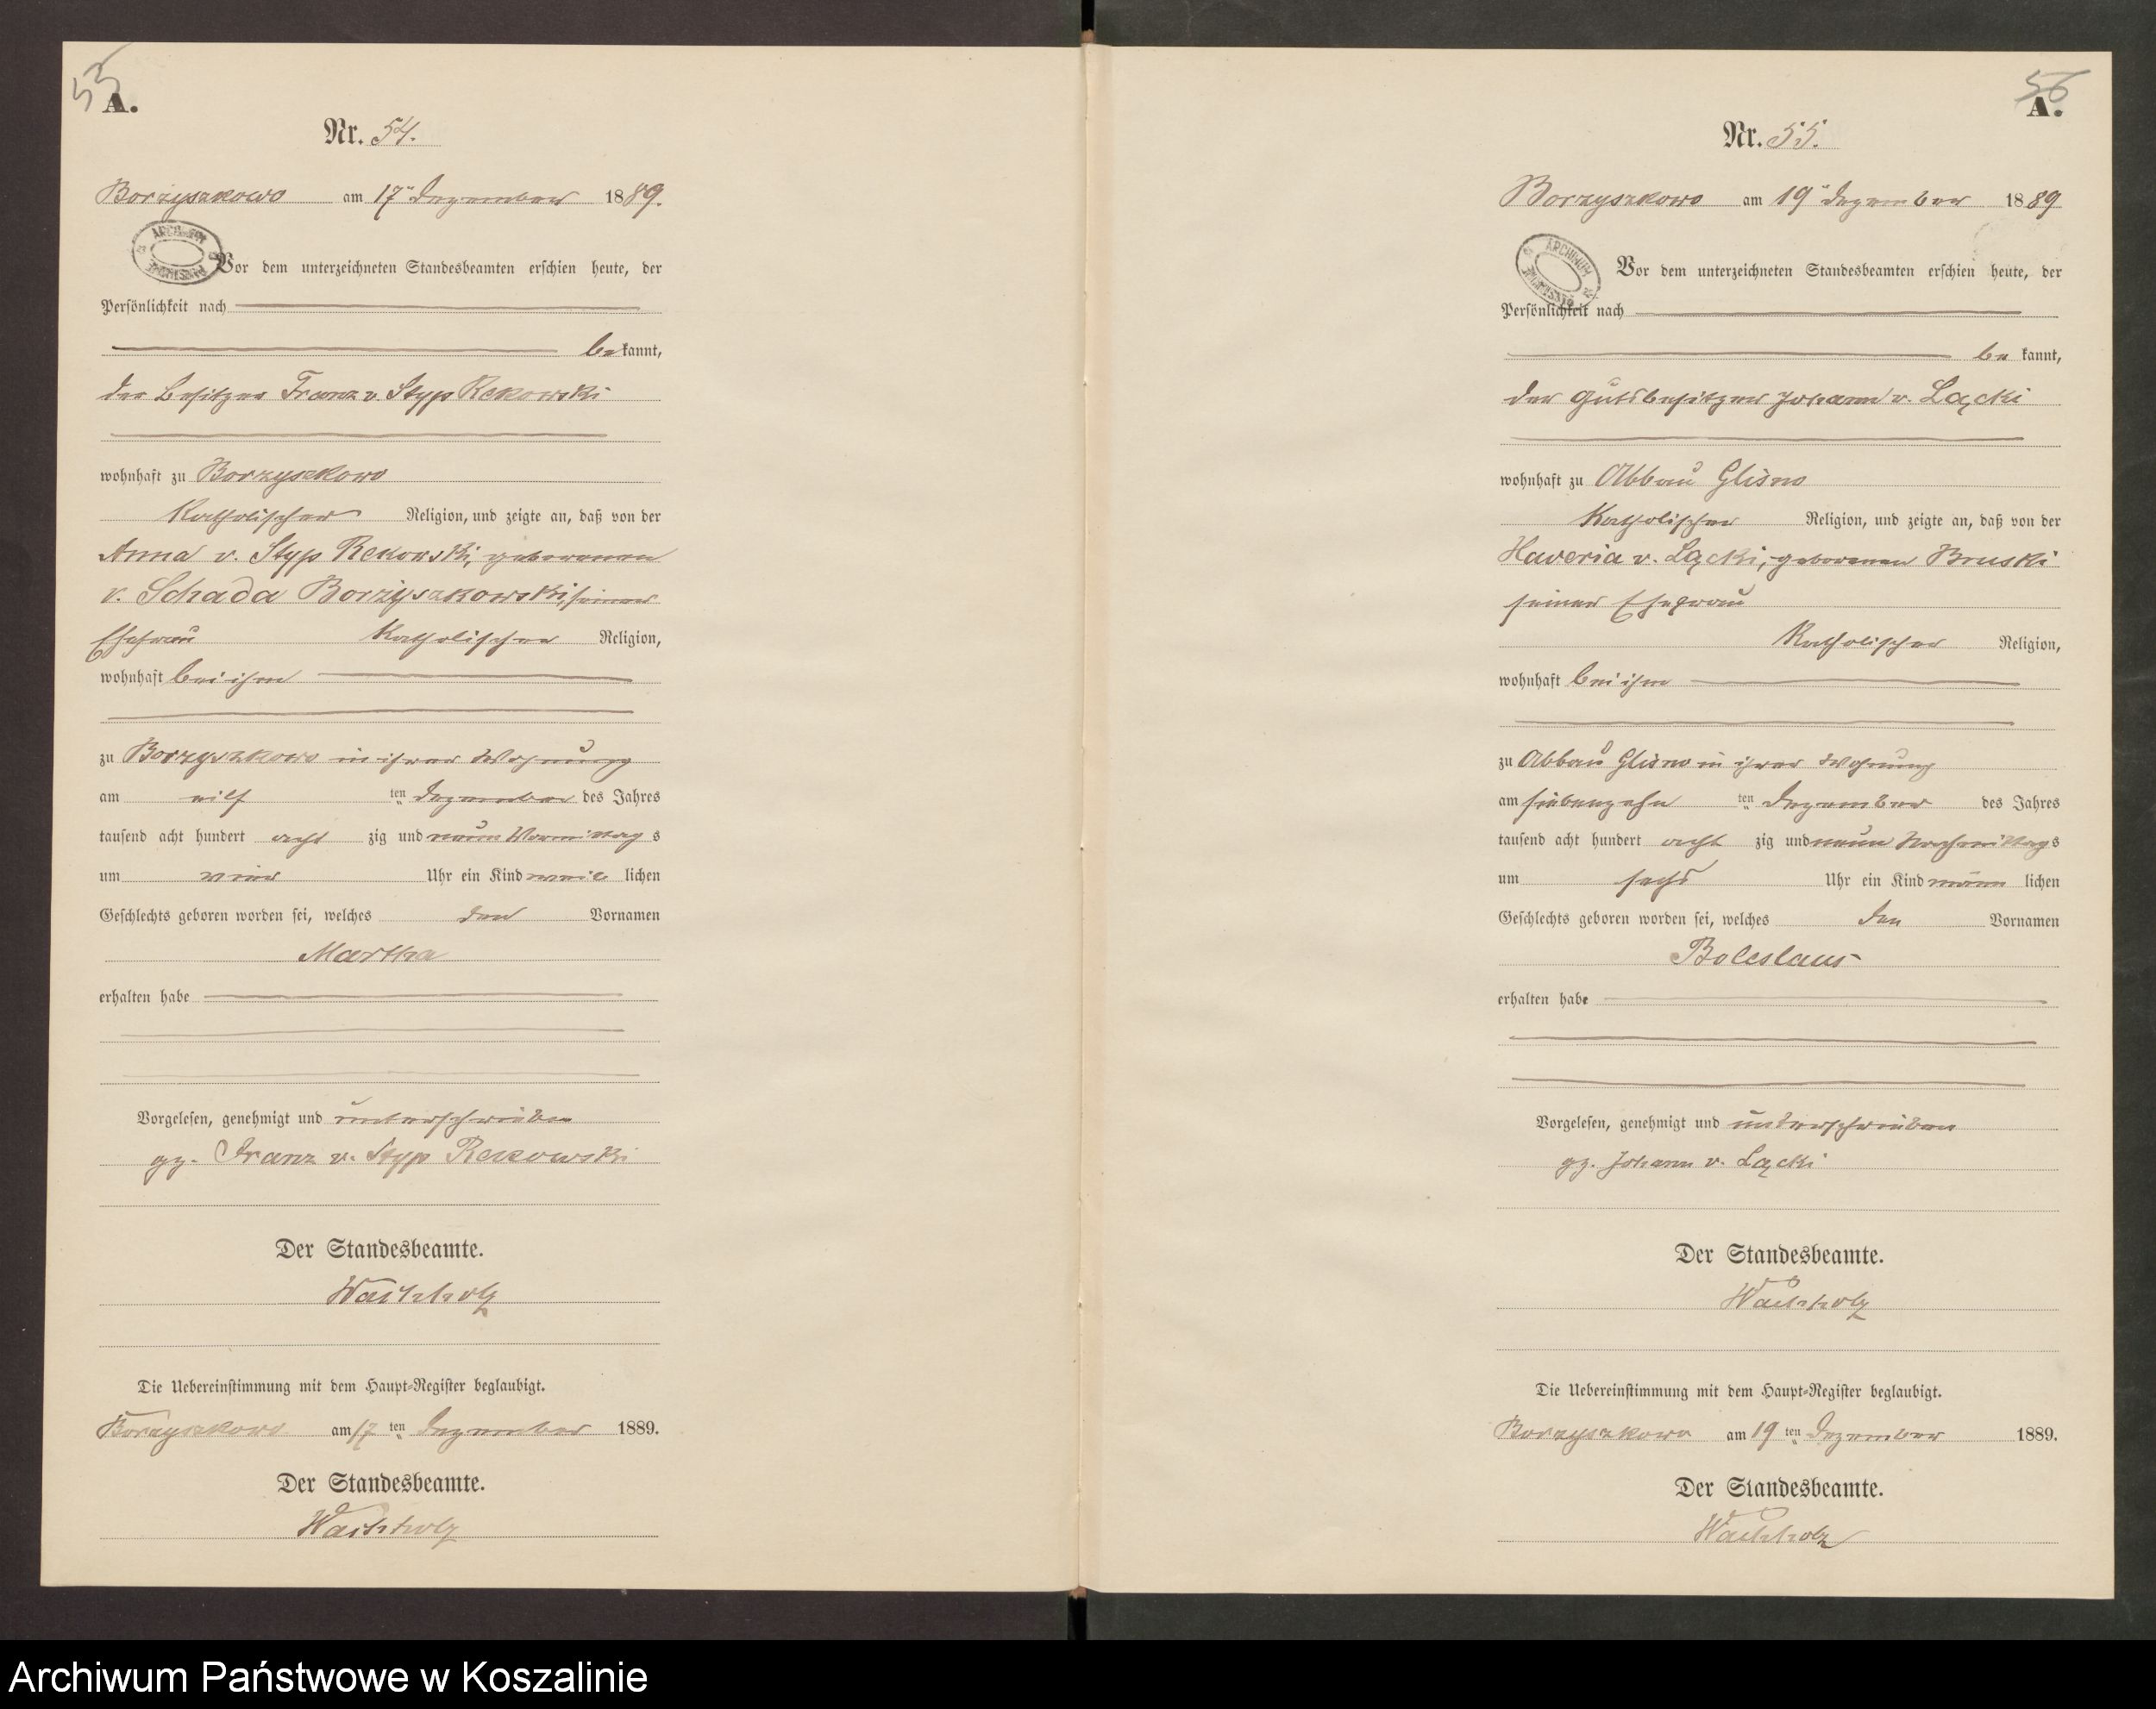 55
A.
Nr. 54.
Borzyszkowo am 17ᵗ Dezember 1889.
ARCHIWUM PAŃSTWOWE
Vor dem unterzeichneten Standesbeamten erschien heute, der
Persönlichkeit nach
bekannt,
der Besitzer Franz v. Styp Rekowski
wohnhaft zu Borzyszkowo
Katholischer Religion, und zeigte an, daß von der
Anna v. Styp Rekowski, geborenen
v. Schada Borzyszkowski, seiner
Ehefrau Katholischer Religion,
wohnhaft bei ihm
zu Borzyszkowo in ihrer Wohnung
am eilf ten Dezember des Jahres
tausend acht hundert acht zig und neun Vormittag s
um vier Uhr ein Kind weib lichen
Geschlechts geboren worden sei, welches den Vornamen
Martha
erhalten habe
Vorgelesen, genehmigt und unterschrieben
gz. Franz v. Styp Rekowski
Der Standesbeamte.
Wachholz
Die Uebereinstimmung mit dem Haupt-Register beglaubigt.
Borzyszkowo am 17 ten Dezember 1889.
Der Standesbeamte.
Wachholz
56
A.
Nr. 55.
Borzyszkowo am 19ᵗ Dezember 1889
ARCHIWUM PAŃSTWOWE
Vor dem unterzeichneten Standesbeamten erschien heute, der
Persönlichkeit nach
be kannt,
der Gutsbesitzer Johann v. Łącki
wohnhaft zu Abbau Glisno
Katholischer Religion, und zeigte an, daß von der
Xaveria v. Łącki, geborenen Bruski
seiner Ehefrau
Katholischer Religion,
wohnhaft bei ihm
zu Abbau Glisno in ihrer Wohnung
am siebenzehn ten Dezember des Jahres
tausend acht hundert acht zig und neun Nachmittags
um sechs Uhr ein Kind männ lichen
Geschlechts geboren worden sei, welches den Vornamen
Boleslaus
erhalten habe
Vorgelesen, genehmigt und unterschrieben
gz. Johann v. Łącki
Der Standesbeamte.
Wachholz
Die Uebereinstimmung mit dem Haupt-Register beglaubigt.
Borzyszkowo am 19 ten Dezember 1889.
Der Standesbeamte.
Wachholz
Archiwum Państwowe w Koszalinie